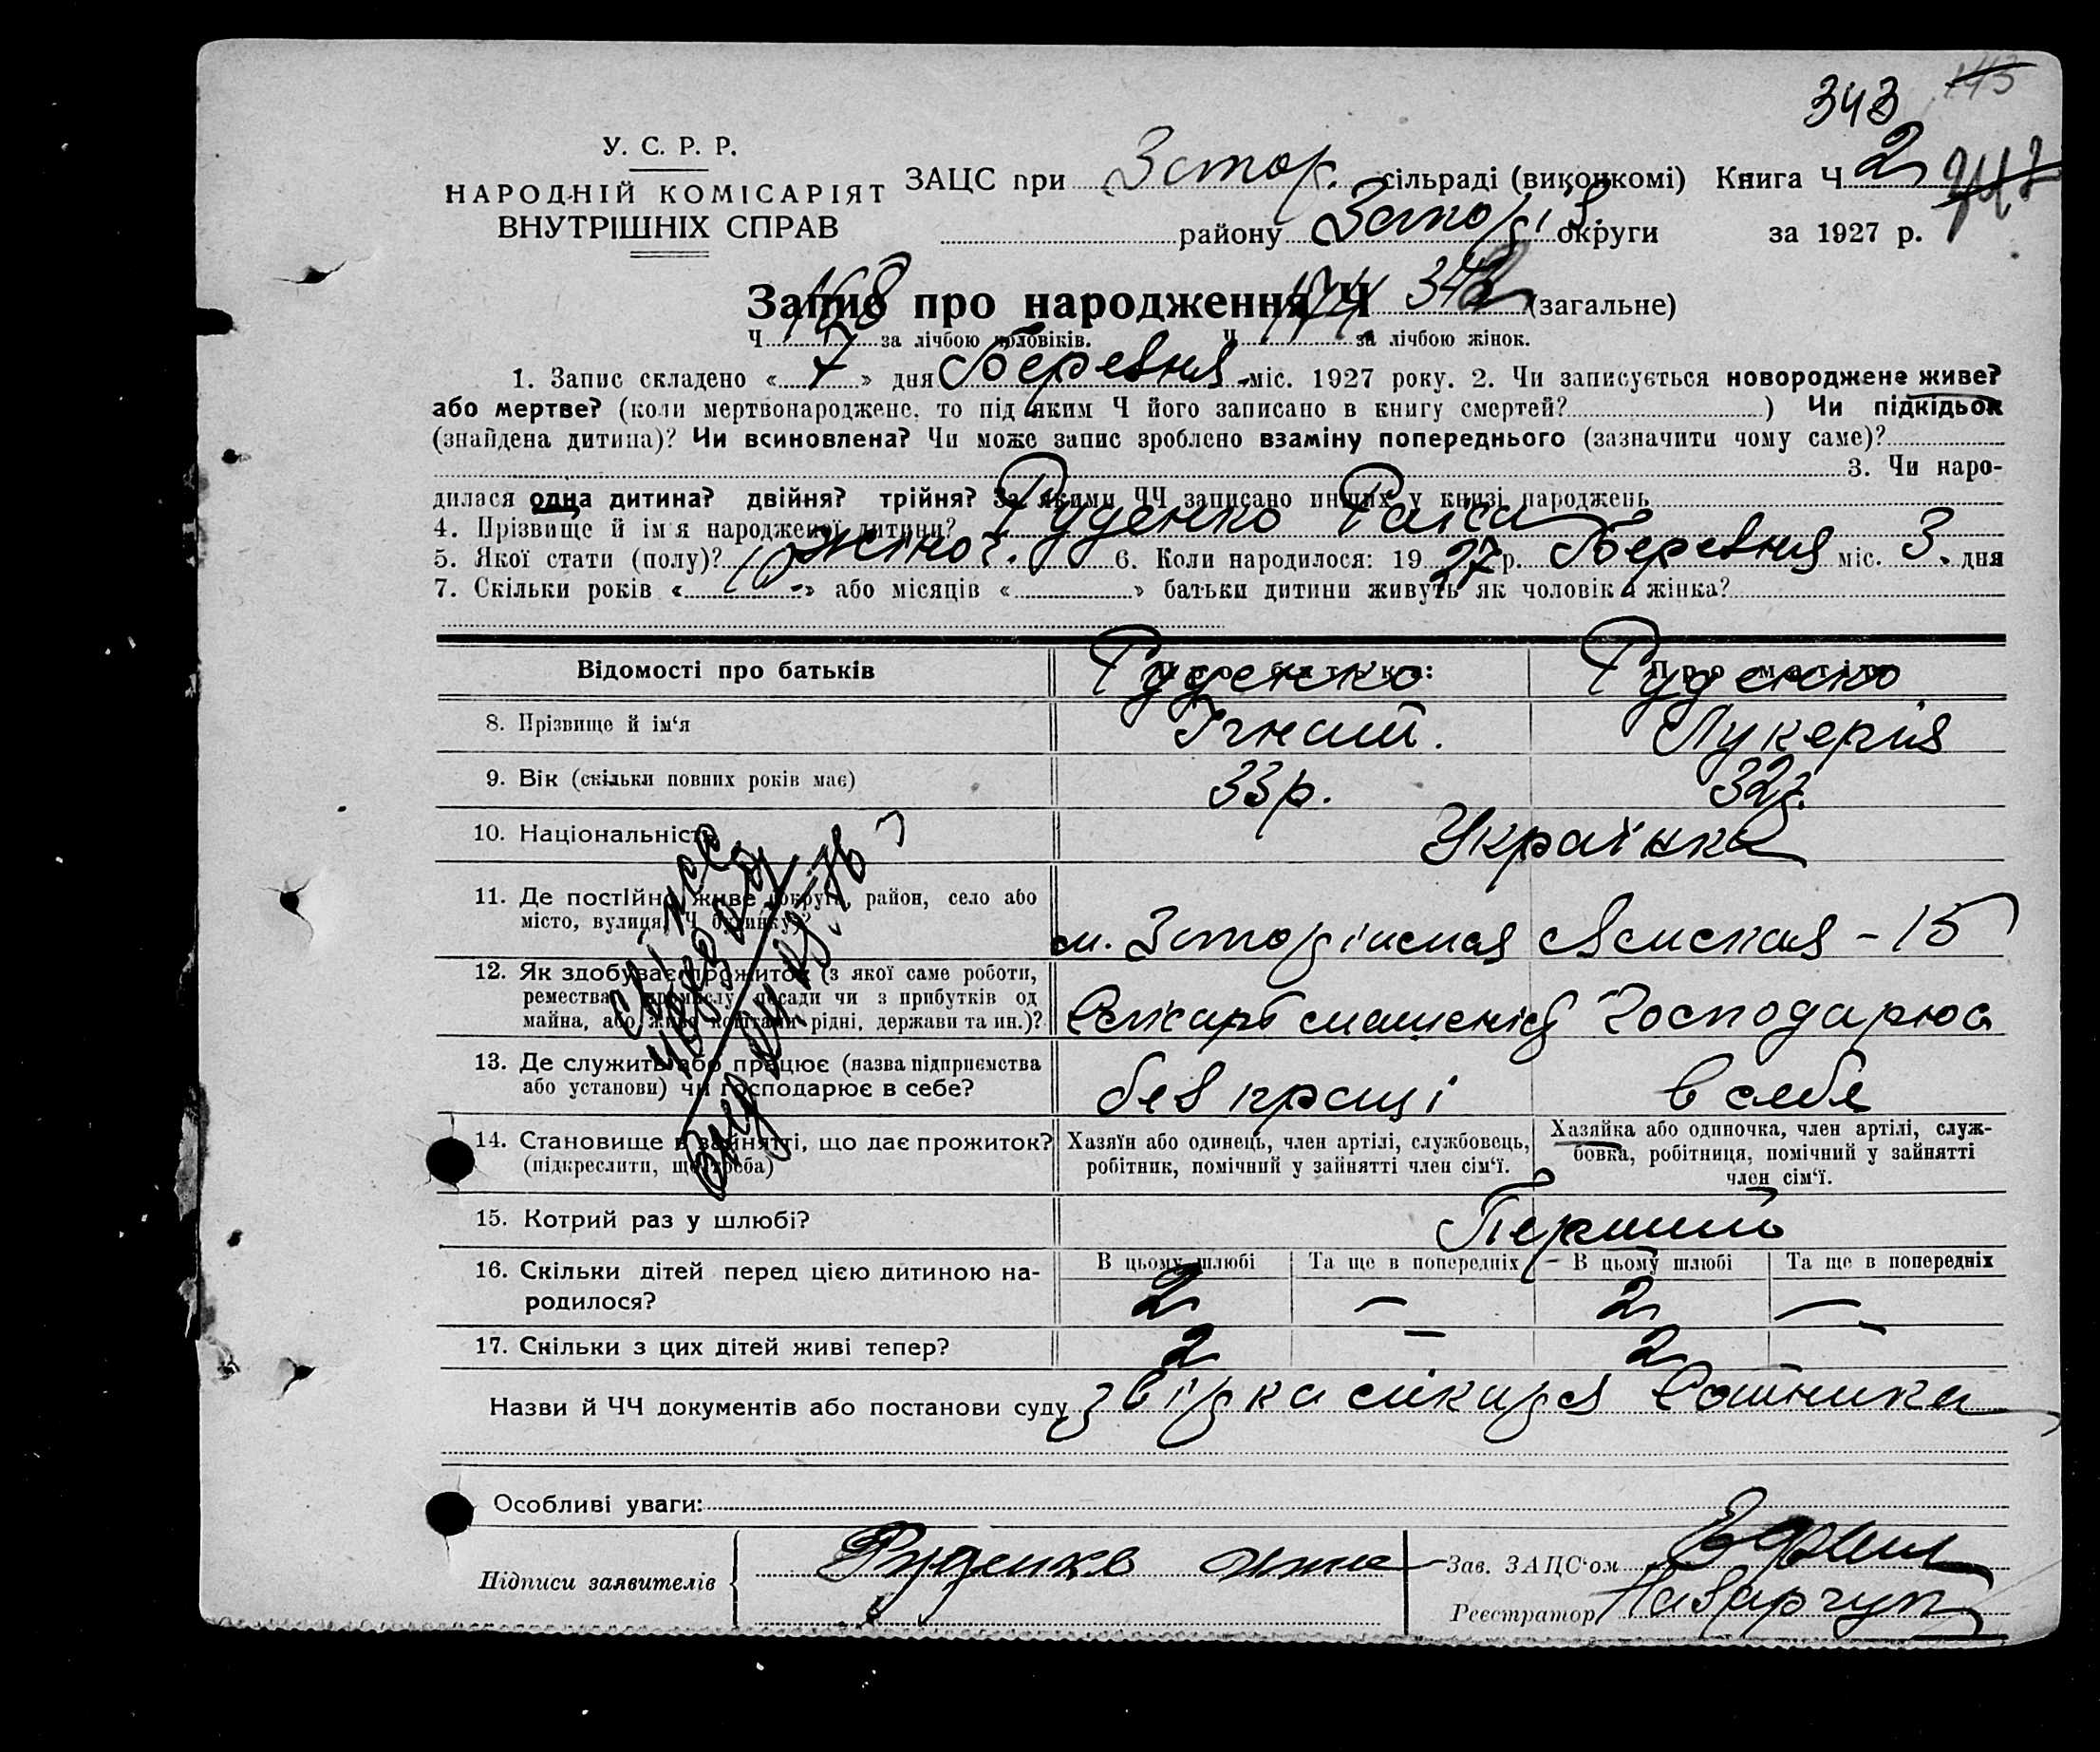 343 143
У. С. Р. Р.
НАРОДНІЙ КОМІСАРІЯТ
ВНУТРІШНІХ СПРАВ
ЗАЦС при Зтор. сільраді (виконкомі) Книга Ч 2
району округи за 1927 р.
Запис про народження Ч 342 (загальне)
Ч 168 за лічбою чоловіків. Ч 174 за лічбою жінок.
1. Запис складено « 7 » дня Березня міс. 1927 року. 2. Чи записується новороджене живе?
або мертве? (коли мертвонароджене, то під яким Ч його записано в книгу смертей? ) Чи підкідьок
(знайдена дитина)? Чи всиновлена? Чи може запис зроблено взаміну попереднього (зазначити чому саме)?
3. Чи наро-
дилася одна дитина? двійня? трійня? За якими ЧЧ записано инших у книзі народжень
4. Прізвище й ім'я народженої дитини? Руденко Раїса
5. Якої стати (полу)? жіноч. 6. Коли народилося: 19 27 р. Березня міс. 3 дня
7. Скільки років « 10 » або місяців « » батьки дитини живуть як чоловік й жінка?
Відомості про батьків Про батька: Про матір:
Руденко Руденко
8. Прізвище й ім'я Ігнат. Лукерія
9. Вік (скільки повних років має) 33 р. 32 р.
10. Національність Українка
11. Де постійно живе (округа, район, село або
місто, вулиця, Ч будинку)? м. - 15
12. Як здобуває прожиток (з якої саме роботи,
ремества, промислу, посади чи з прибутків од
майна, або живе коштами рідні, держави та ин.)? Господарює
13. Де служить або працює (назва підприємства
або установи) чи господарює в себе? без праці в себе
14. Становище в зайнятті, що дає прожиток?
(підкреслити, що треба)
Хазяїн або одинець, член артілі, службовець,
робітник, помічний у зайнятті член сім'ї.
Хазяйка або одиночка, член артілі, служ-
бовка, робітниця, помічний у зайнятті
член сім'ї.
15. Котрий раз у шлюбі? Перший
16. Скільки дітей перед цією дитиною на-
родилося?
В цьому шлюбі Та ще в попередніх В цьому шлюбі Та ще в попередніх
2 — 2 —
17. Скільки з цих дітей живі тепер? 2 — 2 —
Назви й ЧЧ документів або постанови суду
Особливі уваги:
Підписи заявителів Руденко
Зав. ЗАЦС'ом
Реєстратор